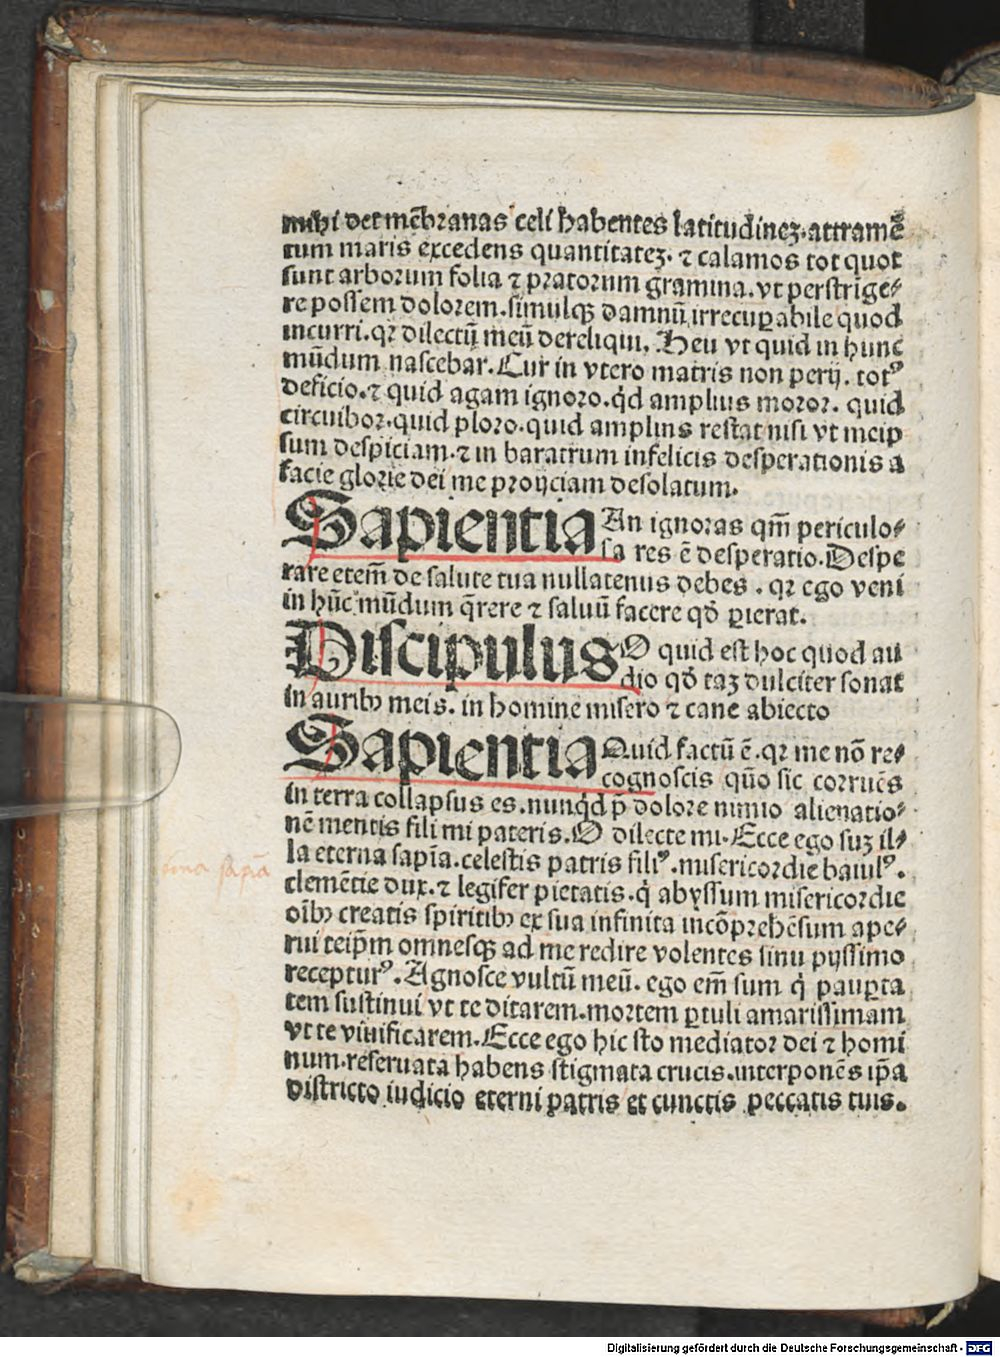 mihi det mēbranas celi habentes latitudinez. attramē
tum maris excedens quantitatez. ⁊ calamos tot quot
sunt arborum folia ⁊ pratorum gramina. vt perstrīge⸗
re possem dolorem. simulqꝫ damnū irrecuꝑabile quod
incurri. qꝛ dilectū meū dereliqui. Heu vt quid in hunc
mūdum nascebar. Cur in vtero matris non perij. totꝰ
deficio. ⁊ quid agam ignoro. qͥd amplius moror. quid
circuibor. quid ploro. quid amplius restat nisi vt meip
sum despiciam. ⁊ in baratrum infelicis desperationis a
facie glorie dei me proijciam desolatum.
Sapientia An ignoras qm̄ periculo⸗
sa res ē desperatio. Despe
rare etem̄ de salute tua nullatenus debes. qꝛ ego veni
in hūc mūdum q̄rere ⁊ saluū facere qd̄ ꝑierat.
Discipulus O quid est hoc quod au
dio qd̄ taꝫ dulciter sonat
in auribꝫ meis. in homine misero ⁊ cane abiecto
Sapientia Quid factū ē. qꝛ me nō re⸗
cognoscis quō sic corruēs
in terra collapsus es. nunqͥd p̄ dolore nimio alienatio⸗
nē mentis fili mi pateris. O dilecte mi. Ecce ego suꝫ il⸗
la eterna sapīa. celestis patris filiꝰ. misericordie baiulꝰ.
clemētie dux. ⁊ legifer pietatis. qͥ abyssum misericordie
oībꝫ creatis spiritibꝫ ex sua infinita incōprehēsum ape⸗
rui teip̄m omnesqꝫ ad me redire volentes sinu pijssimo
recepturꝰ. Agnosce vultū meū. ego em̄ sum qͥ pauꝑta
tem sustinui vt te ditarem. mortem ꝑtuli amarissimam
vt te viuificarem. Ecce ego hic sto mediator dei ⁊ homi
num. reseruata habens stigmata crucis. interponēs ip̄a
districto iudicio eterni patris et cunctis peccatis tuis.
sapīa
Digitalisierung gefördert durch die Deutsche Forschungsgemeinschaft - DFG